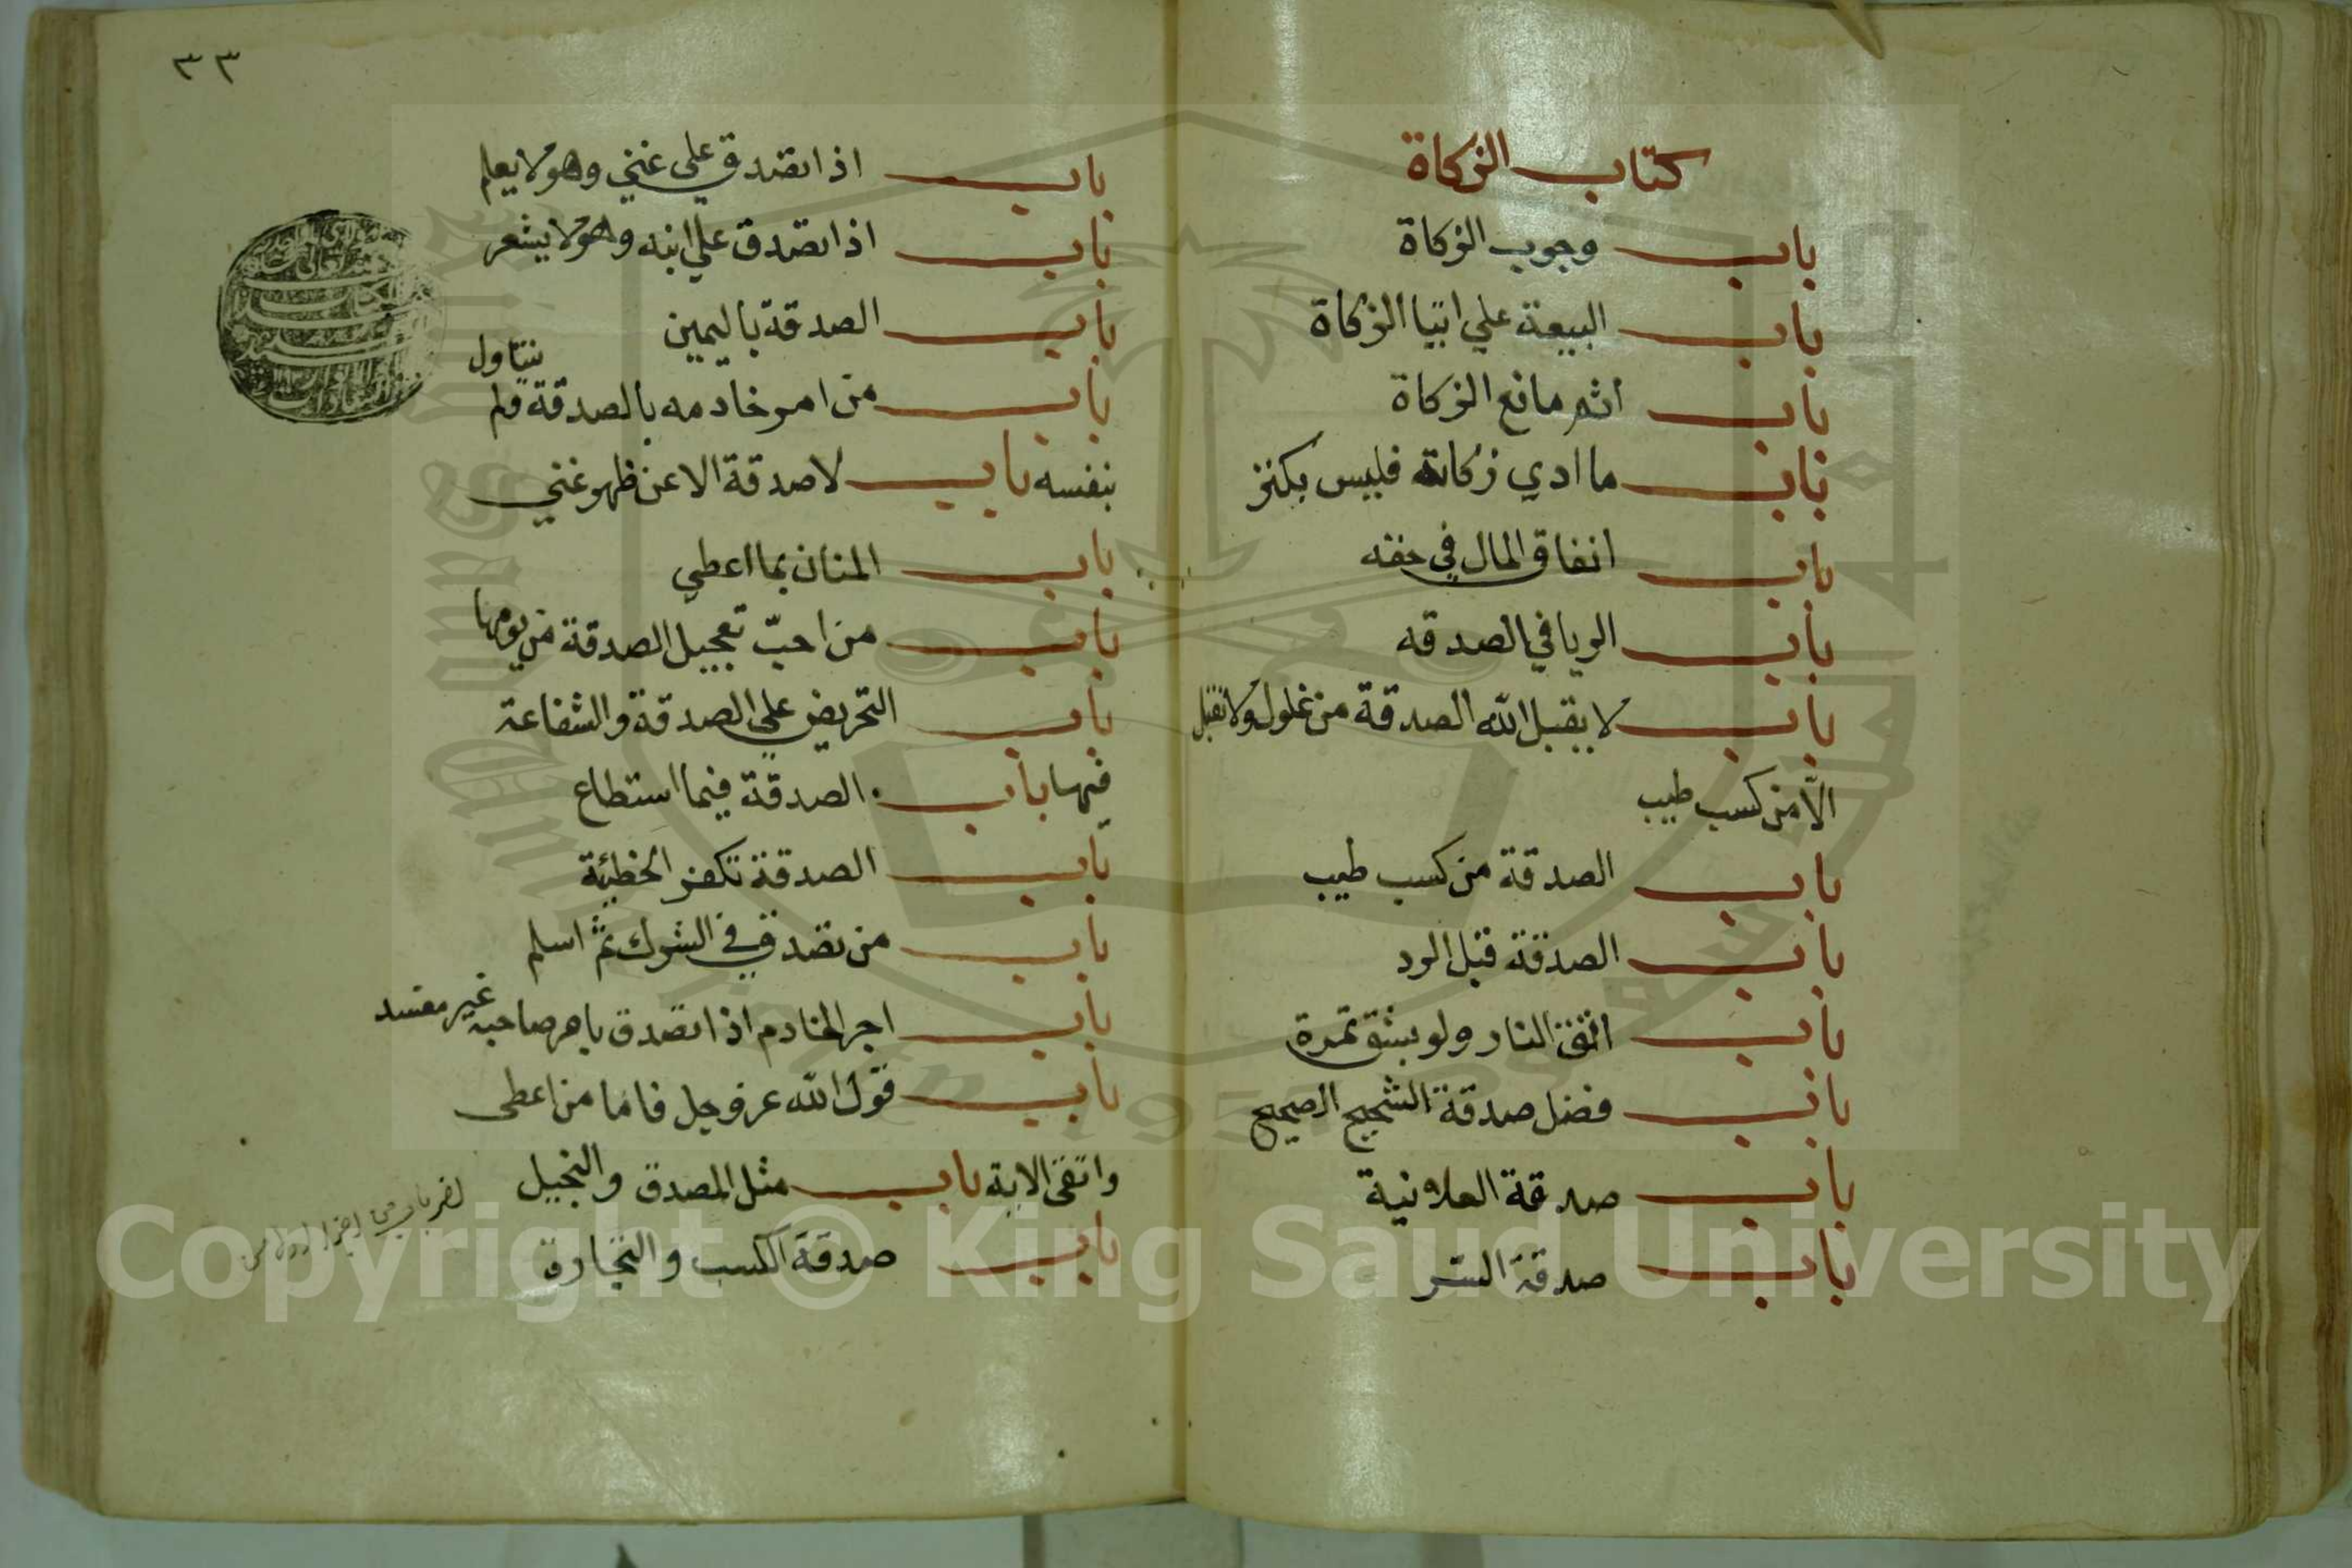 كتاب الزكاة
باب وجوب الزكاة
باب البيعة علي ايتا الزكاة
باب اثم مانع الزكاة
باب ما ادي زكاته فليس بكنز
باب انفاق المال في حقه
باب الريا في الصدقه
باب لا يقبل الله الصدقة من غلول ولا تقبل
الّا من كسب طيب
باب الصدقة من كسب طيب
باب الصدقة قبل الرد
باب اتقوا النار ولو بشق تمرة
باب فضل صدقة الشحيح الصحيح
باب صدقة العلانية
باب صدقة السر
٣٣
باب اذا تصدق علي غني وهو لا يعلم
باب اذا تصدق علي ابنه وهو لا يشعر
باب الصدقة باليمين
باب من امر خادمه بالصدقة ولم يتناول
بنفسه باب لا صدقة الا عن ظهر غني
باب المنان بما اعطي
باب من احبّ تعجيل الصدقة من يومها
باب التحريض علي الصدقة والشفاعة
فيها باب الصدقة فيما استطاع
باب الصدقة تكفر الخطيئة
باب من تصدق في الشرك ثم اسلم
باب اجر الخادم اذا تصدق بامر صاحبه غير مفسد
باب قول الله عز وجل فاما من اعطى
واتقى الاية باب مثل المصدق والبخيل
باب صدقة الكسب والتجارة
Copyright © King Saud University
1957